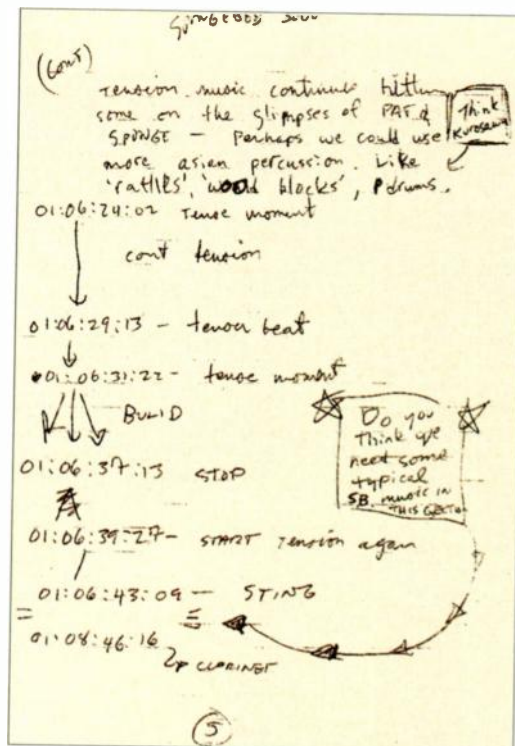 (Cont)
Tension music continues hitting
some on the glimpses of PAT &
SPONGE - Perhaps we could use
more asian percussion. Like
'rattles', 'wood blocks', drums.
Think
Kurosawa
01:06:24:02 Tense moment
cont tension
01:06:29:13 - tenser beat
01:06:31:22 - tense moment
BUILD
01:06:37:13 STOP
01:06:39:27 - START Tension again
01:06:43:09 - STING
01:08:46:16
CLARINET
Do you
Think we
need some
typical
SB. music in
THIS
5